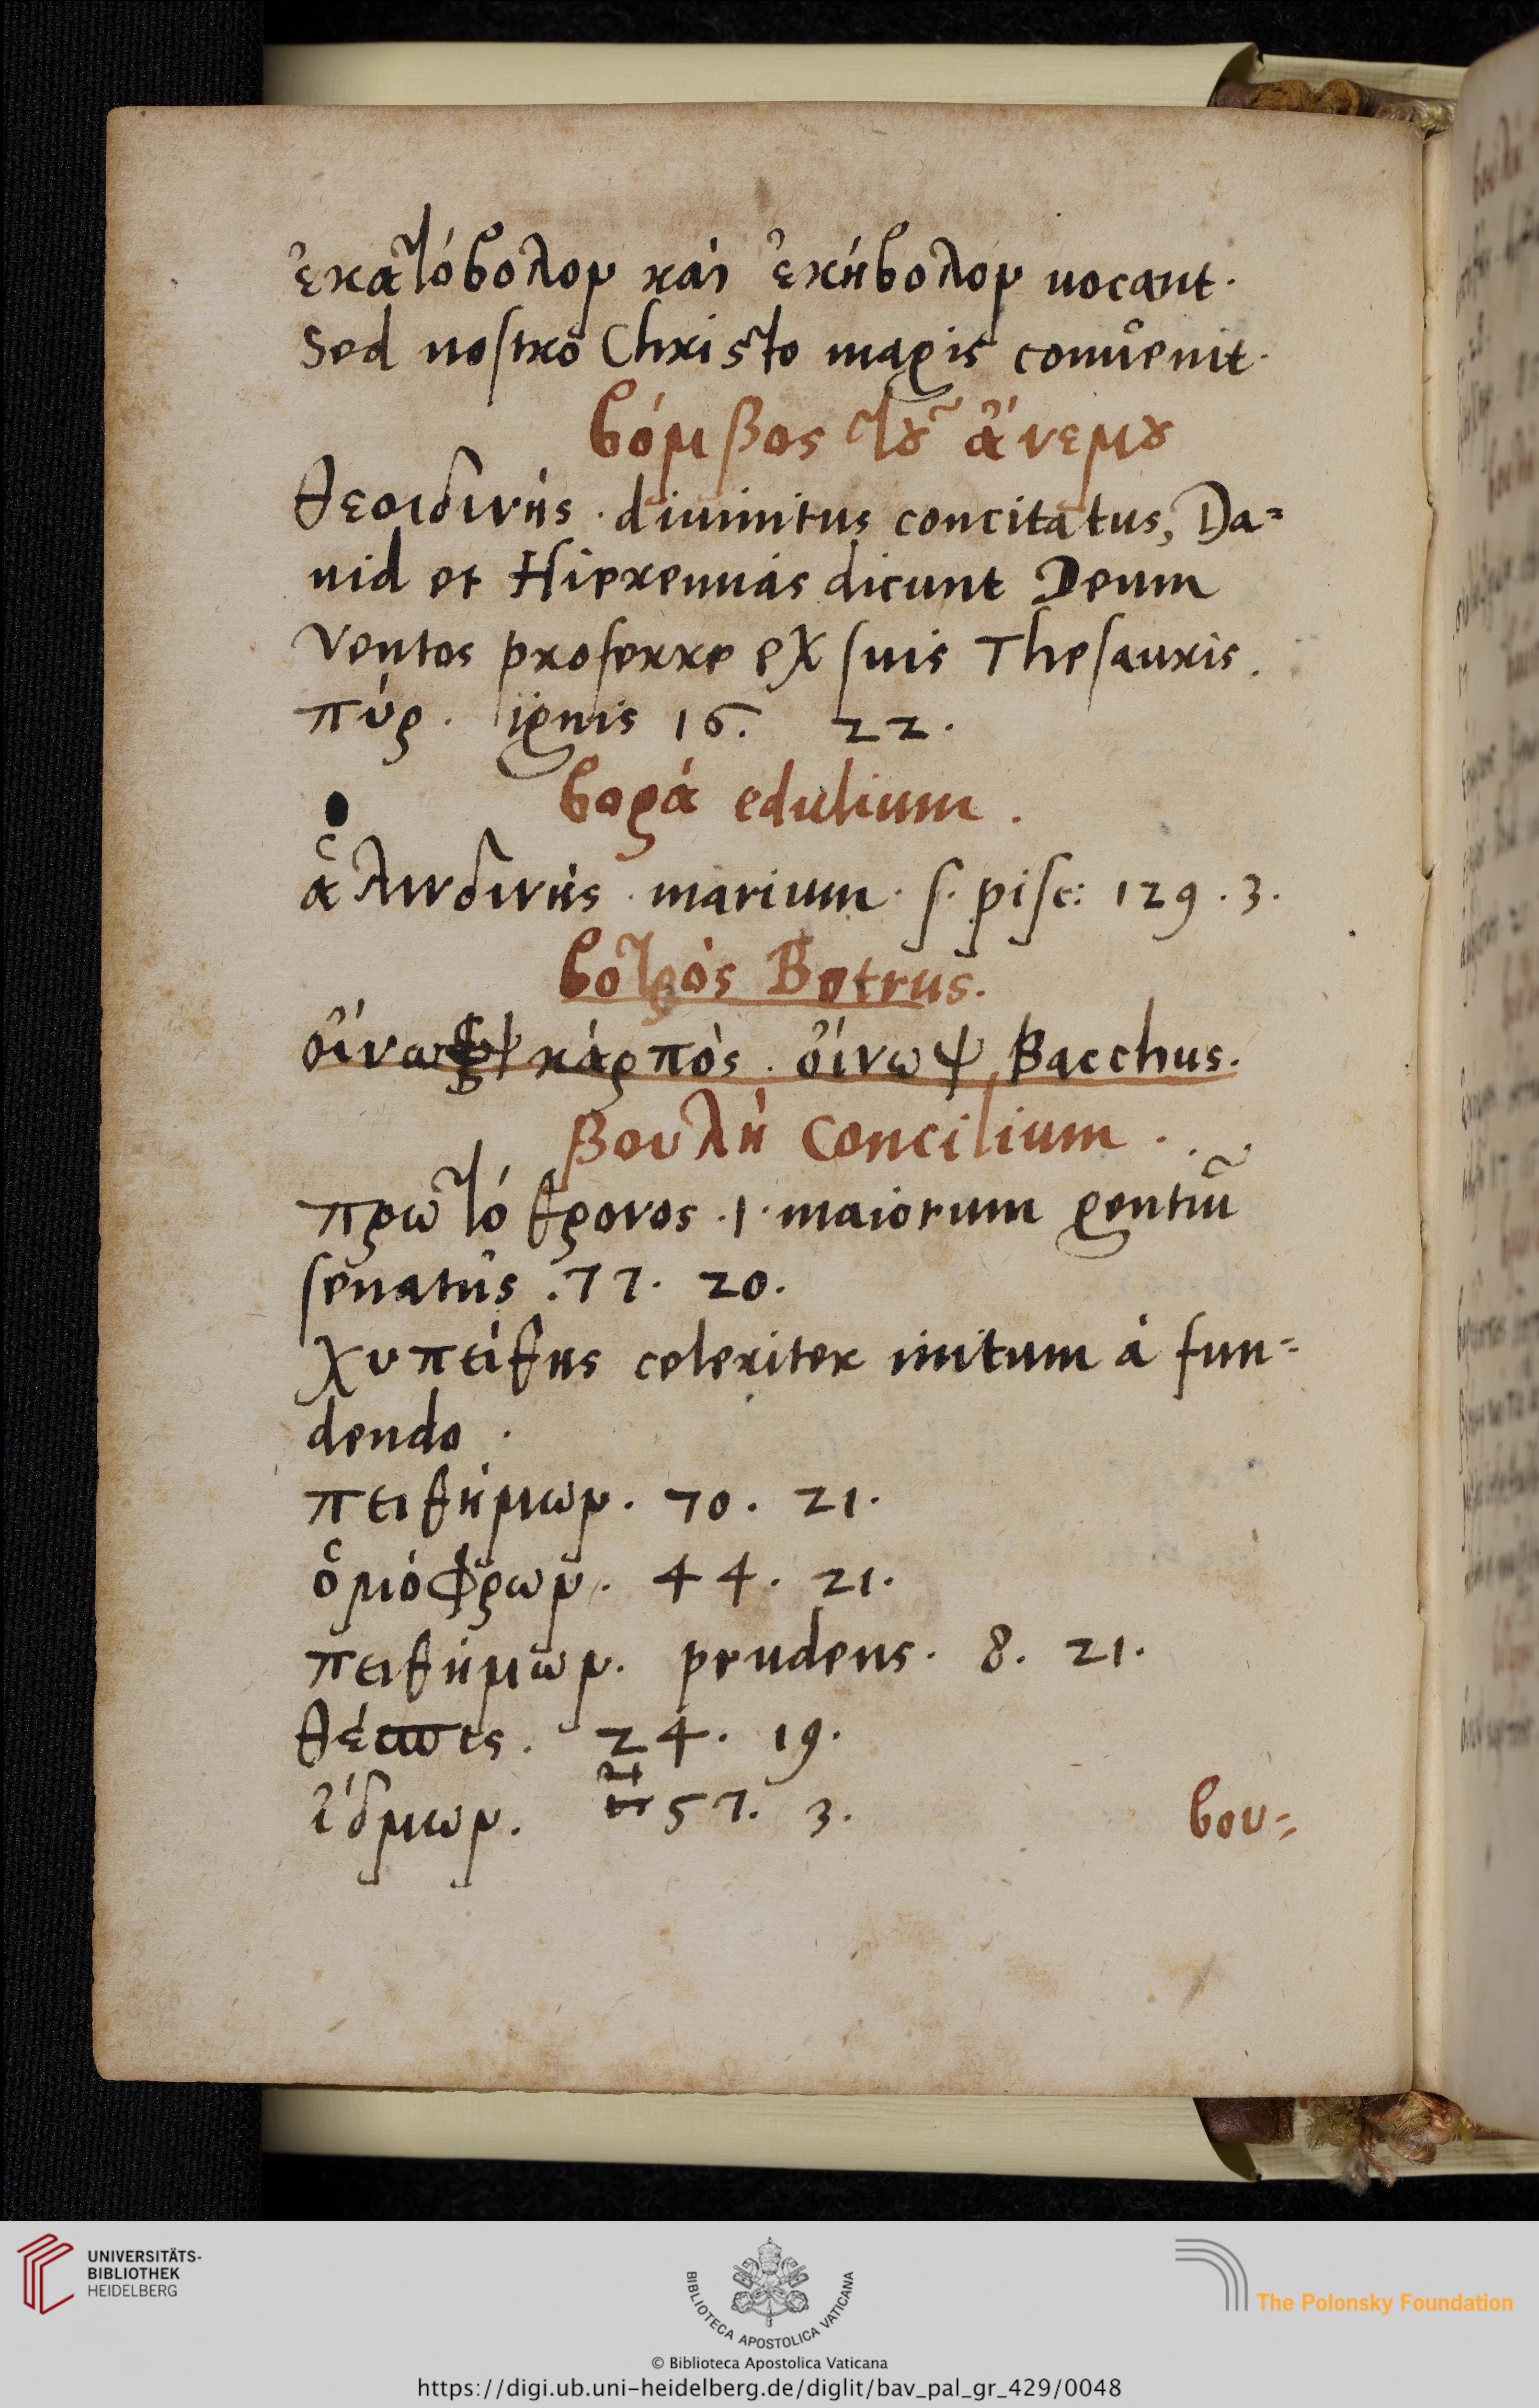 ἑκατόβολον καὶ ἑκήβολον uocant.
Sed nostro Christo magis conuenit.
βόμβος τȣ͂ ἀνέμȣ
θεοιδινής . diuinitus concitatus, Da=
uid et Hieremias dicunt Deum
Ventos proferre ex suis Thesauris.
πύρ. ignis 16. 22.
βορά edulium.
ἁλινδινής . marium. s. pisc: 129. 3.
βοτρός Botrus.
οἴνωψ κάρπὸς . οἴνωψ Bacchus.
βουλή Concilium.
πρωτόθρονος .1. maiorum gentiũ
senatus . 77. 20.
χυπείθης celeriter initum à fun=
dendo.
πειθήμων. 70. 21.
ὁμόφρων. 44. 21.
πειθήμων. prudens. 8. 21.
24. 19.
ἴδμων. 57. 3.
βου=
UNIVERSITÄTS-
BIBLIOTHEK
HEIDELBERG
BIBLIOTECA APOSTOLICA VATICANA
© Biblioteca Apostolica Vaticana
The Polonsky Foundation
https://digi.ub.uni-heidelberg.de/diglit/bav_pal_gr_429/0048